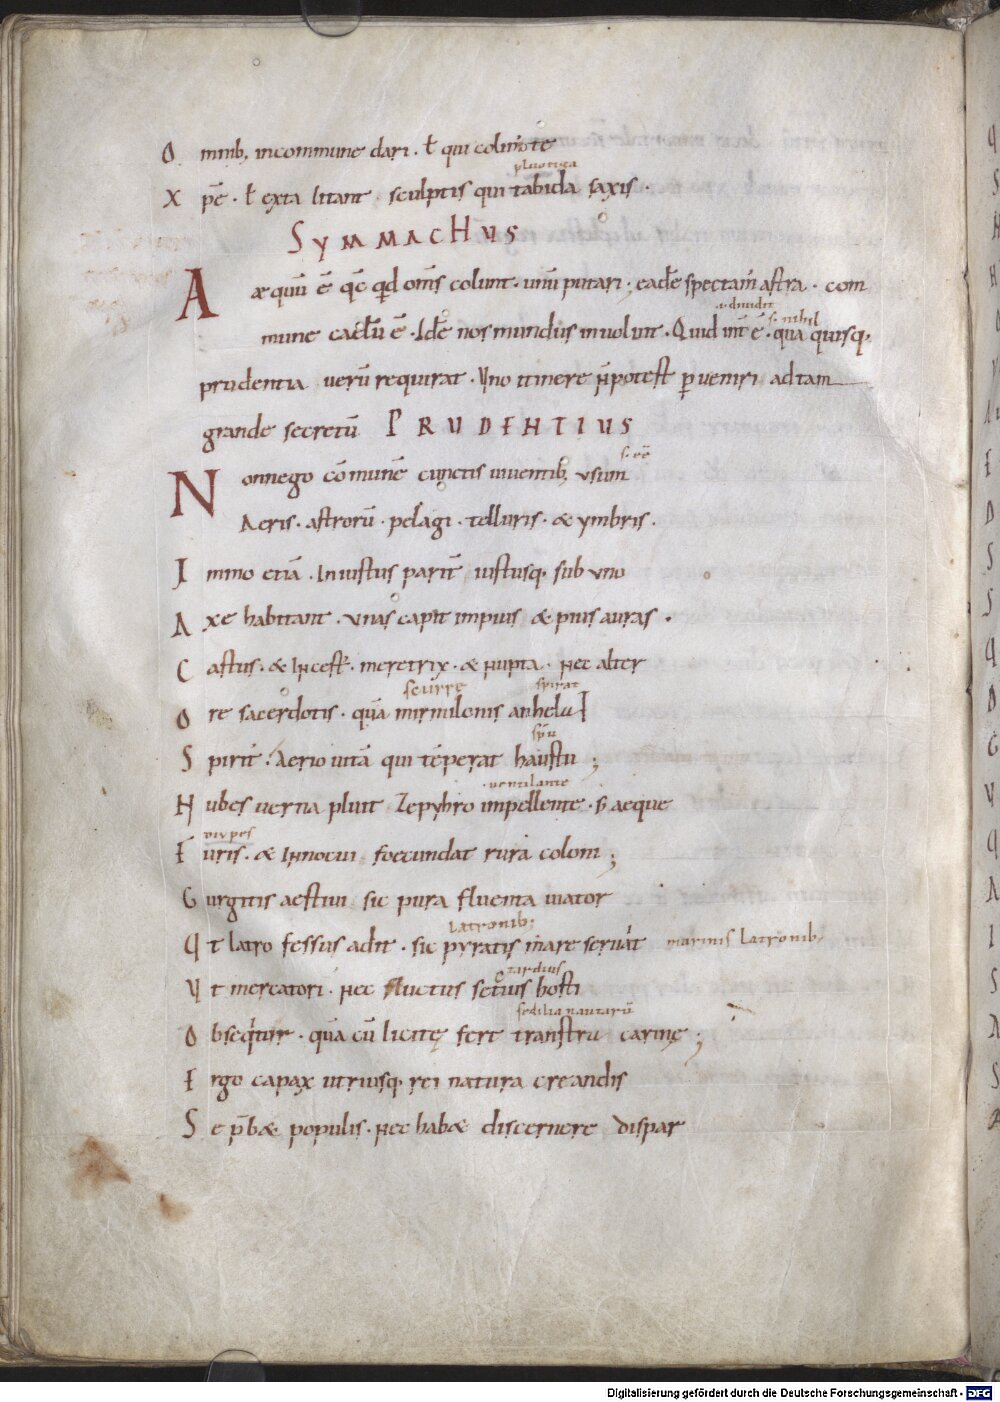 O mnib; incommune dari · ł qui coluere
plutica
X pē · ł exta litant · sculptis qui tabida saxis ·
SYMMACHUS
A æquū ē qc̄ qd om̄s colunt · unū putari ; eadē spectam᷒ astra · com
ł diuidit s· nihil
mune caelū ē · Idē nos mundus inuoluit · Quid int̄ ē · qua quisq;
prudentia uerū requirat · Uno itinere n̄ potest p̱ueniri ad tam
grande secretū PRUDENTIUS
s· eē
N onnego cōmunē cunctis uiuentib; usum
Aeris · astrorū · pelagi · telluris · & ymbris ·
I mmo etiā · Iniustus parit̄ iustusq; sub uno
A xe habitant · unas capit impius & pius auras ·
C astus · & Incest᷒ · meretrix · & nupta · nec alter
scurre spirat
O re sacerdotis · quā mirmilonis anhelat
spū
S pirit᷒ · Aerio uitā qui tēperat haustu ;
uentilante
N ubes uerna pluit Zephyro impellente · s; aeque
F uris · & Innocui foecundat rura coloni ;
G urgitis aestiui sic pura fluenta uiator
Latronib;
Q t latro fessus adit · sic pyratis mare seruit marinis Latronib;
tardius
U t mercatori · nec fluctus setius hosti
sedilia nautarū
O bseqt̄ur · quā cū licitę fert transtra carinę ;
E rgo capax utriusq; rei natura creandis
S e p̄b& populis · nec hab& discernere dispar
Digitalisierung gefördert durch die Deutsche Forschungsgemeinschaft - DFG